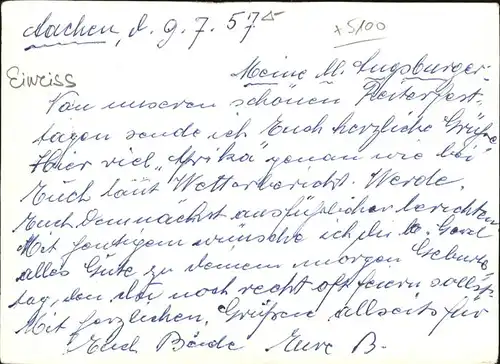 Aachen, d. 9.7.57
+5100
Einriss
Meine ll. Augsburger-
Von unseren schönen Reiterfest-
tagen sende ich Euch herzliche Grüße
Hier viel „Afrika" genau wie bei
Euch laut Wetterbericht. Werde
Euch demnächst ausführlicher berichten
Mit heutigem wünsche ich dir lb.
alles Gute zu deinem morgen Geburts
tag, den du noch recht oft feiern sollst
Mit herzlichen Grüßen allseits für
Euch Beide Eure B.